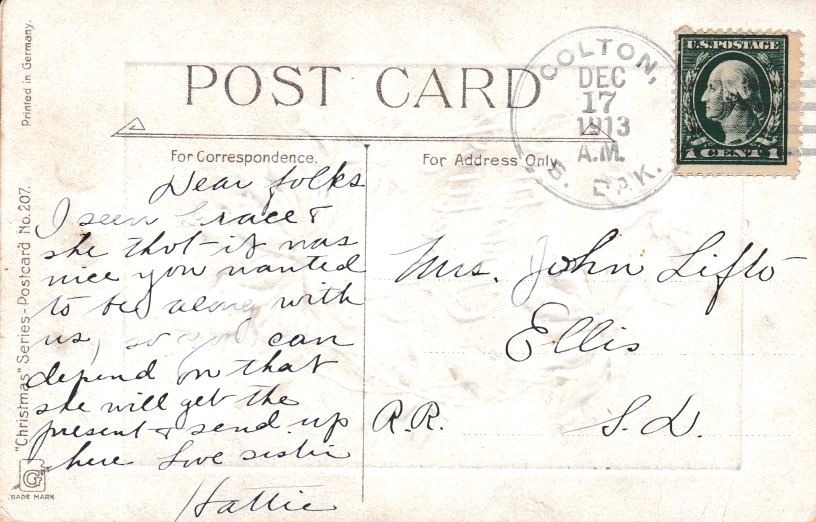 Printed in Germany.
"Christmas" Series - Postcard No. 207.
G
TRADE MARK
POST CARD
For Correspondence.
For Address Only
COLTON,
DEC
17
1913
A.M.
S. DAK.
U.S. POSTAGE
1 CENT 1
Dear folks
I seen Grace &
she thot it was
nice you wanted
to be along with
us, so you can
depend on that
she will get the
present & send up
here Love sister
Hattie
Mrs. John Lifto
Ellis
R.R. S.D.